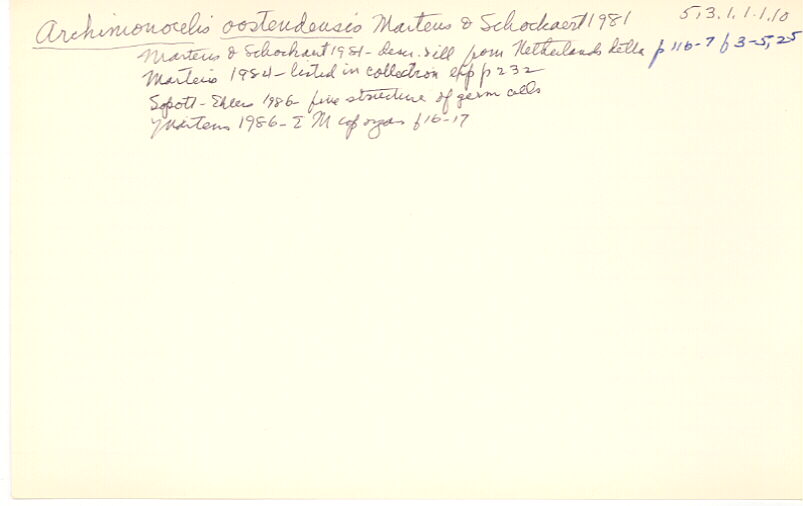 Archimonocelis oostendensis Martens & Schockaert 1981 5.3.1.1.1.10
Martens & Schockaert 1981 - descr. & ill from Netherlands delta p 116-7 f 3-5, 25
Martens 1984 - listed in collection exp p 232
Sopott-Ehlers 1986 - fine structure of germ cells
Martens 1986 - EM cop organ f 16-17